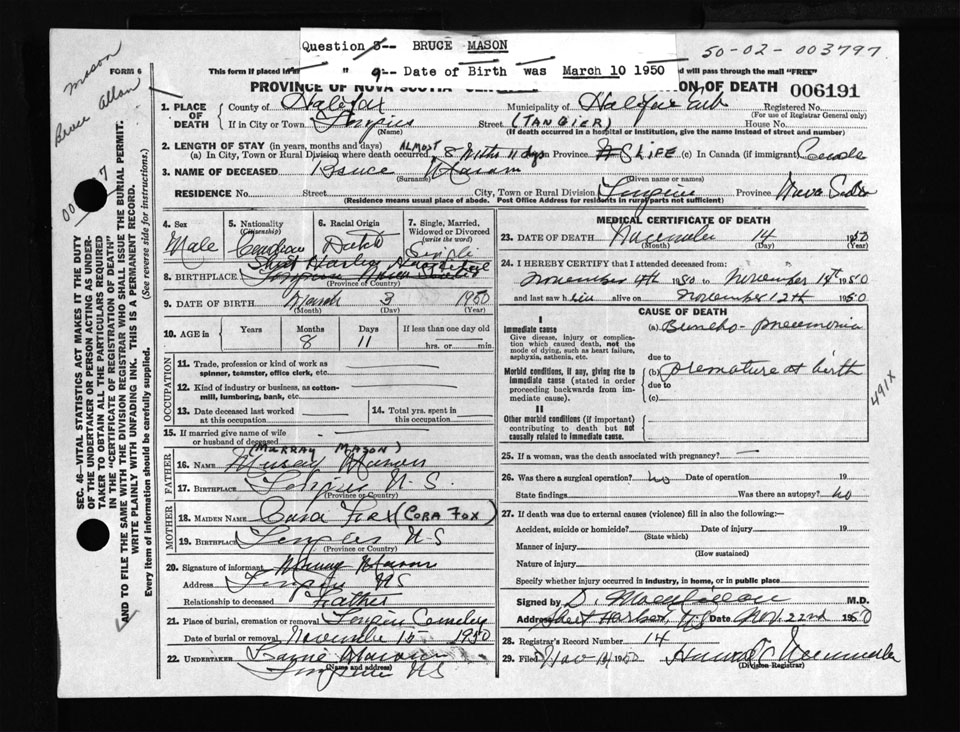 Question 3-- BRUCE MASON
" 9-- Date of Birth was March 10 1950
50-02-003797
Mason
Bruce Allan
007
FORM 6
This form if placed in will pass through the mail "FREE"
PROVINCE OF NOVA SCOTIA ION OF DEATH 006191
1. PLACE OF DEATH
County of Halifax Municipality of Halifax Registered No.
(For use of Registrar General only)
If in City or Town Street (TANGIER) House No.
(Name) (If death occurred in a hospital or institution, give the name instead of street and number)
2. LENGTH OF STAY (in years, months and days)
(a) In City, Town or Rural Division where death occurred ALMOST 8 Mths 11 days in Province NS LIFE (c) In Canada (if immigrant)
3. NAME OF DECEASED Bruce Mason
(Surname) (Given name or names)
RESIDENCE No. Street City, Town or Rural Division Province Nova Scotia
(Residence means usual place of abode. Post Office Address for residents in rural parts not sufficient)
4. Sex
Male
5. Nationality (Citizenship)
Canadian
6. Racial Origin
Dutch
7. Single, Married, Widowed or Divorced (write the word)
Single
8. BIRTHPLACE Sheet Harbor
(Province or Country)
9. DATE OF BIRTH March 3 1950
(Month) (Day) (Year)
10. AGE in Years Months Days If less than one day old
8 11 hrs. or min.
OCCUPATION
11. Trade, profession or kind of work as spinner, teamster, office clerk, etc.
12. Kind of industry or business, as cotton-mill, lumbering, bank, etc.
13. Date deceased last worked at this occupation
14. Total yrs. spent in this occupation
15. If married give name of wife or husband of deceased
(MURRAY MASON)
FATHER
16. NAME Murray Mason
17. BIRTHPLACE N.S.
(Province or Country)
MOTHER
18. MAIDEN NAME Cora Fox (CORA FOX)
19. BIRTHPLACE N-S
(Province or Country)
20. Signature of informant Murray Mason
Address NS
Relationship to deceased Father
21. Place of burial, cremation or removal Cemetery
Date of burial or removal November 15 1950
22. UNDERTAKER
(Name and address)
NS
MEDICAL CERTIFICATE OF DEATH
23. DATE OF DEATH November 14 1950
(Month) (Day) (Year)
24. I HEREBY CERTIFY that I attended deceased from:
November 4th 1950 to November 14th 1950
and last saw him alive on November 12th 1950
CAUSE OF DEATH
I
Immediate cause
Give disease, injury or complication which caused death, not the mode of dying, such as heart failure, asphyxia, asthenia, etc.
(a) Broncho-pneumonia
due to
Morbid conditions, if any, giving rise to immediate cause (stated in order proceeding backwards from immediate cause).
(b) premature at birth
due to
(c)
491X
II
Other morbid conditions (if important) contributing to death but not causally related to immediate cause.
25. If a woman, was the death associated with pregnancy? —
26. Was there a surgical operation? no Date of operation 19
State findings Was there an autopsy? no
27. If death was due to external causes (violence) fill in also the following:—
Accident, suicide or homicide? Date of injury 19
(State which)
Manner of injury
(How sustained)
Nature of injury
Specify whether injury occurred in industry, in home, or in public place
Signed by D. M.D.
Address Sheet Harbor, NS Date Nov. 22nd 1950
28. Registrar's Record Number 14
29. Filed Nov 1950
(Division Registrar)
SEC. 46—VITAL STATISTICS ACT MAKES IT THE DUTY
OF THE UNDERTAKER OR PERSON ACTING AS UNDER-
TAKER TO OBTAIN ALL THE PARTICULARS REQUIRED
IN THE "CERTIFICATE OF REGISTRATION OF DEATH"
AND TO FILE THE SAME WITH THE DIVISION REGISTRAR WHO SHALL ISSUE THE BURIAL PERMIT.
WRITE PLAINLY WITH UNFADING INK. THIS IS A PERMANENT RECORD.
Every item of information should be carefully supplied. (See reverse side for instructions.)